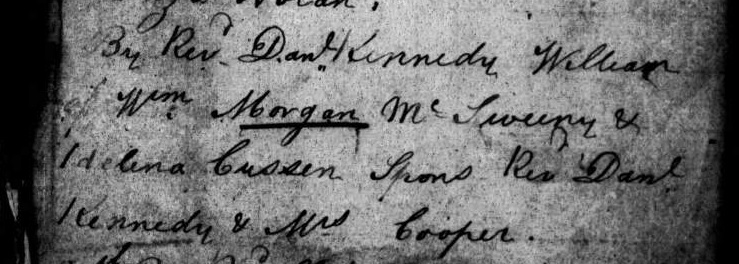 By Revd. Danl. Kennedy William
of Wm. Morgan Mc Sweeny &
Helena Cussen Spons Revd Danl
Kennedy & Mrs Cooper.